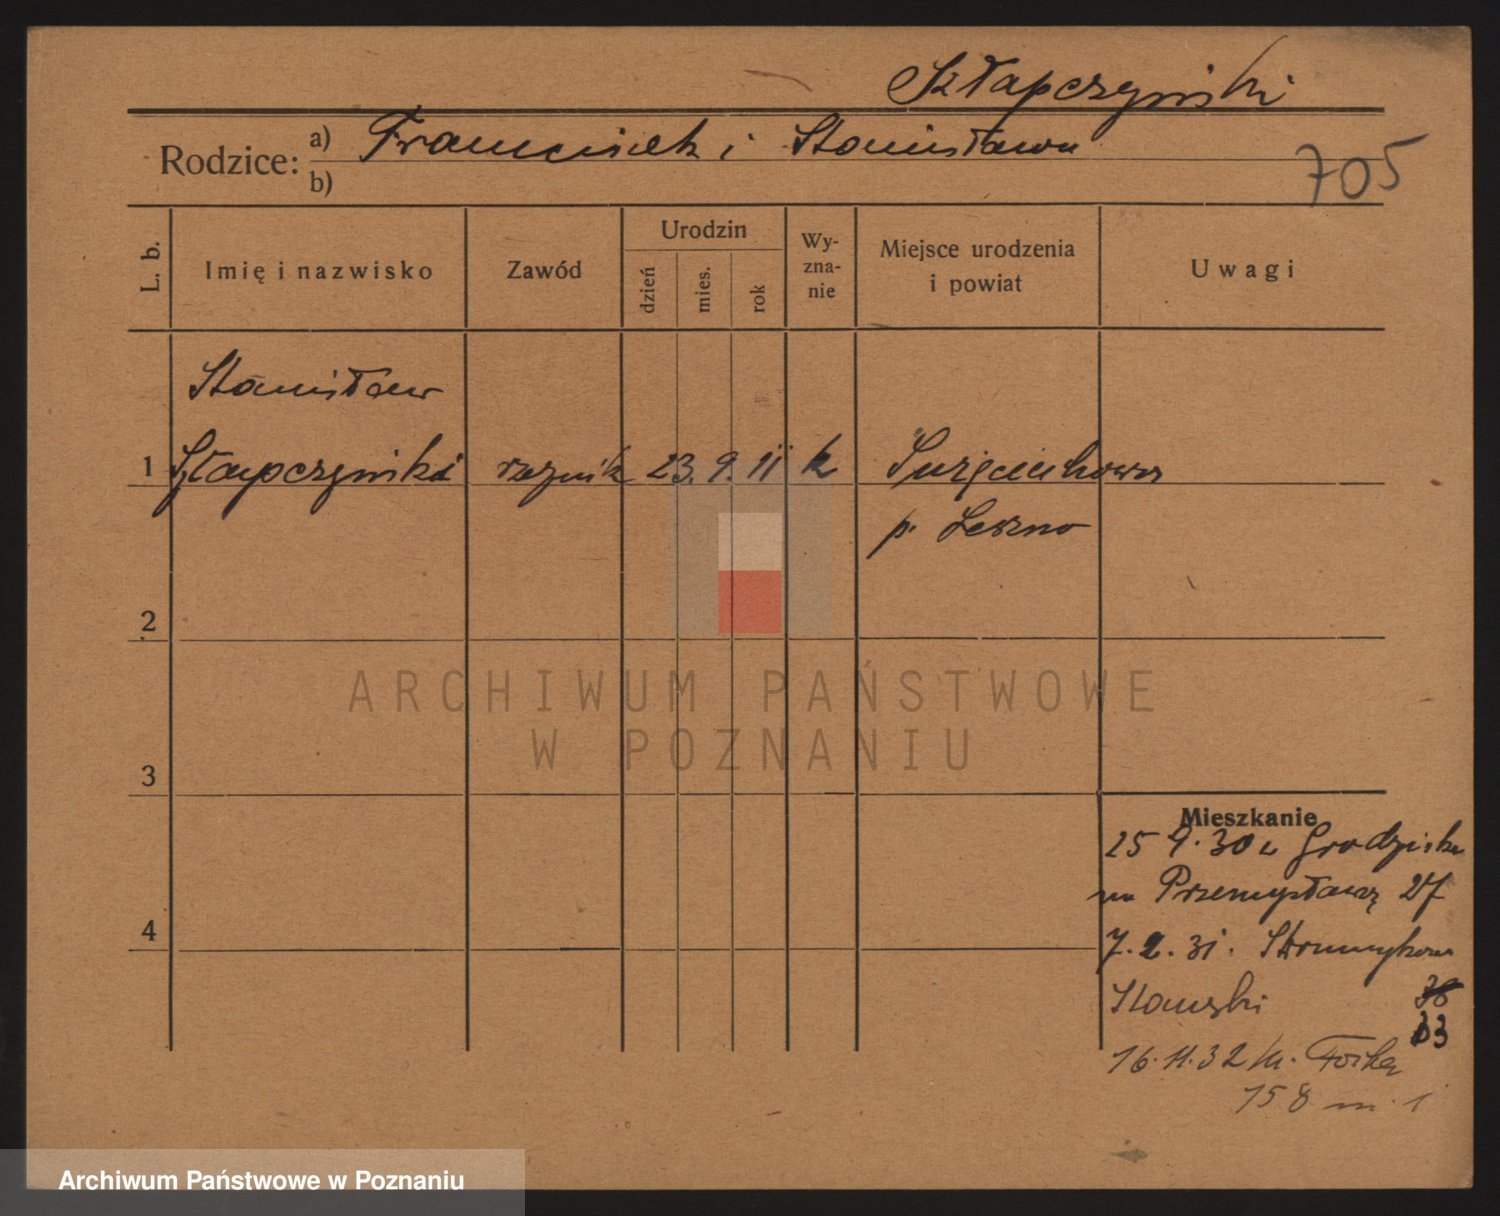 Szłapczyński
Rodzice: a) Franciszek i Stanisława
b)
705
L. b. Imię i nazwisko Zawód Urodzin dzień mies. rok Wy-zna-nie Miejsce urodzenia i powiat Uwagi
Stanisław
1 Szłapczyński rzeźnik 23. 9. 11 k
p. Leszno
2
ARCHIWUM PAŃSTWOWE
W POZNANIU
3
Mieszkanie
25 9. 30 z Grodziska
na Przemysławą 27
4
7. 2. 31. Strumykowa
38
33
16. 11. 32
158 m. 1
Archiwum Państwowe w Poznaniu